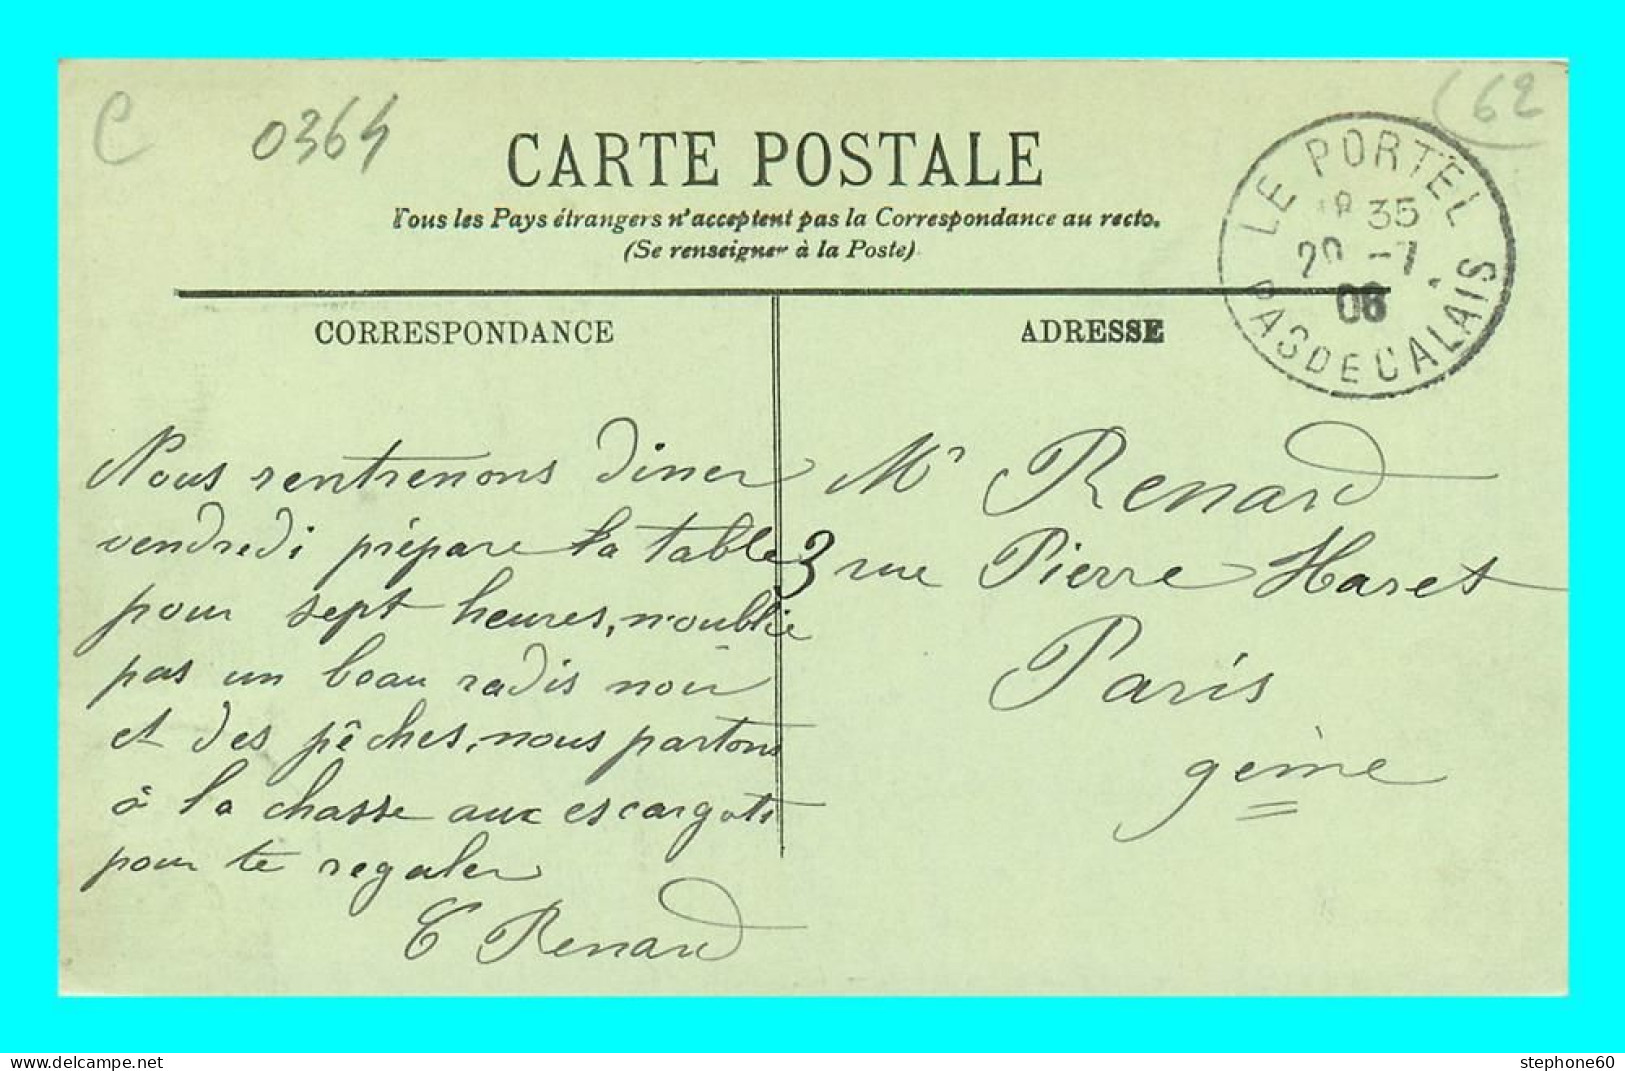 C
0364
(62
CARTE POSTALE
Tous les Pays étrangers n'acceptent pas la Correspondance au recto.
(Se renseigner à la Poste)
LE PORTEL
35
20 -7
06
PAS DE CALAIS
CORRESPONDANCE
ADRESSE
Nous rentrenons diner
vendredi prépare la table
pour sept heures, n'oublie
pas un beau radis noir
et des pêches, nous partons
à la chasse aux escargots
pour te regaler
C Renard
Mr Renard
3 rue Pierre Haret
Paris
9ème
stephone60
www.delcampe.net